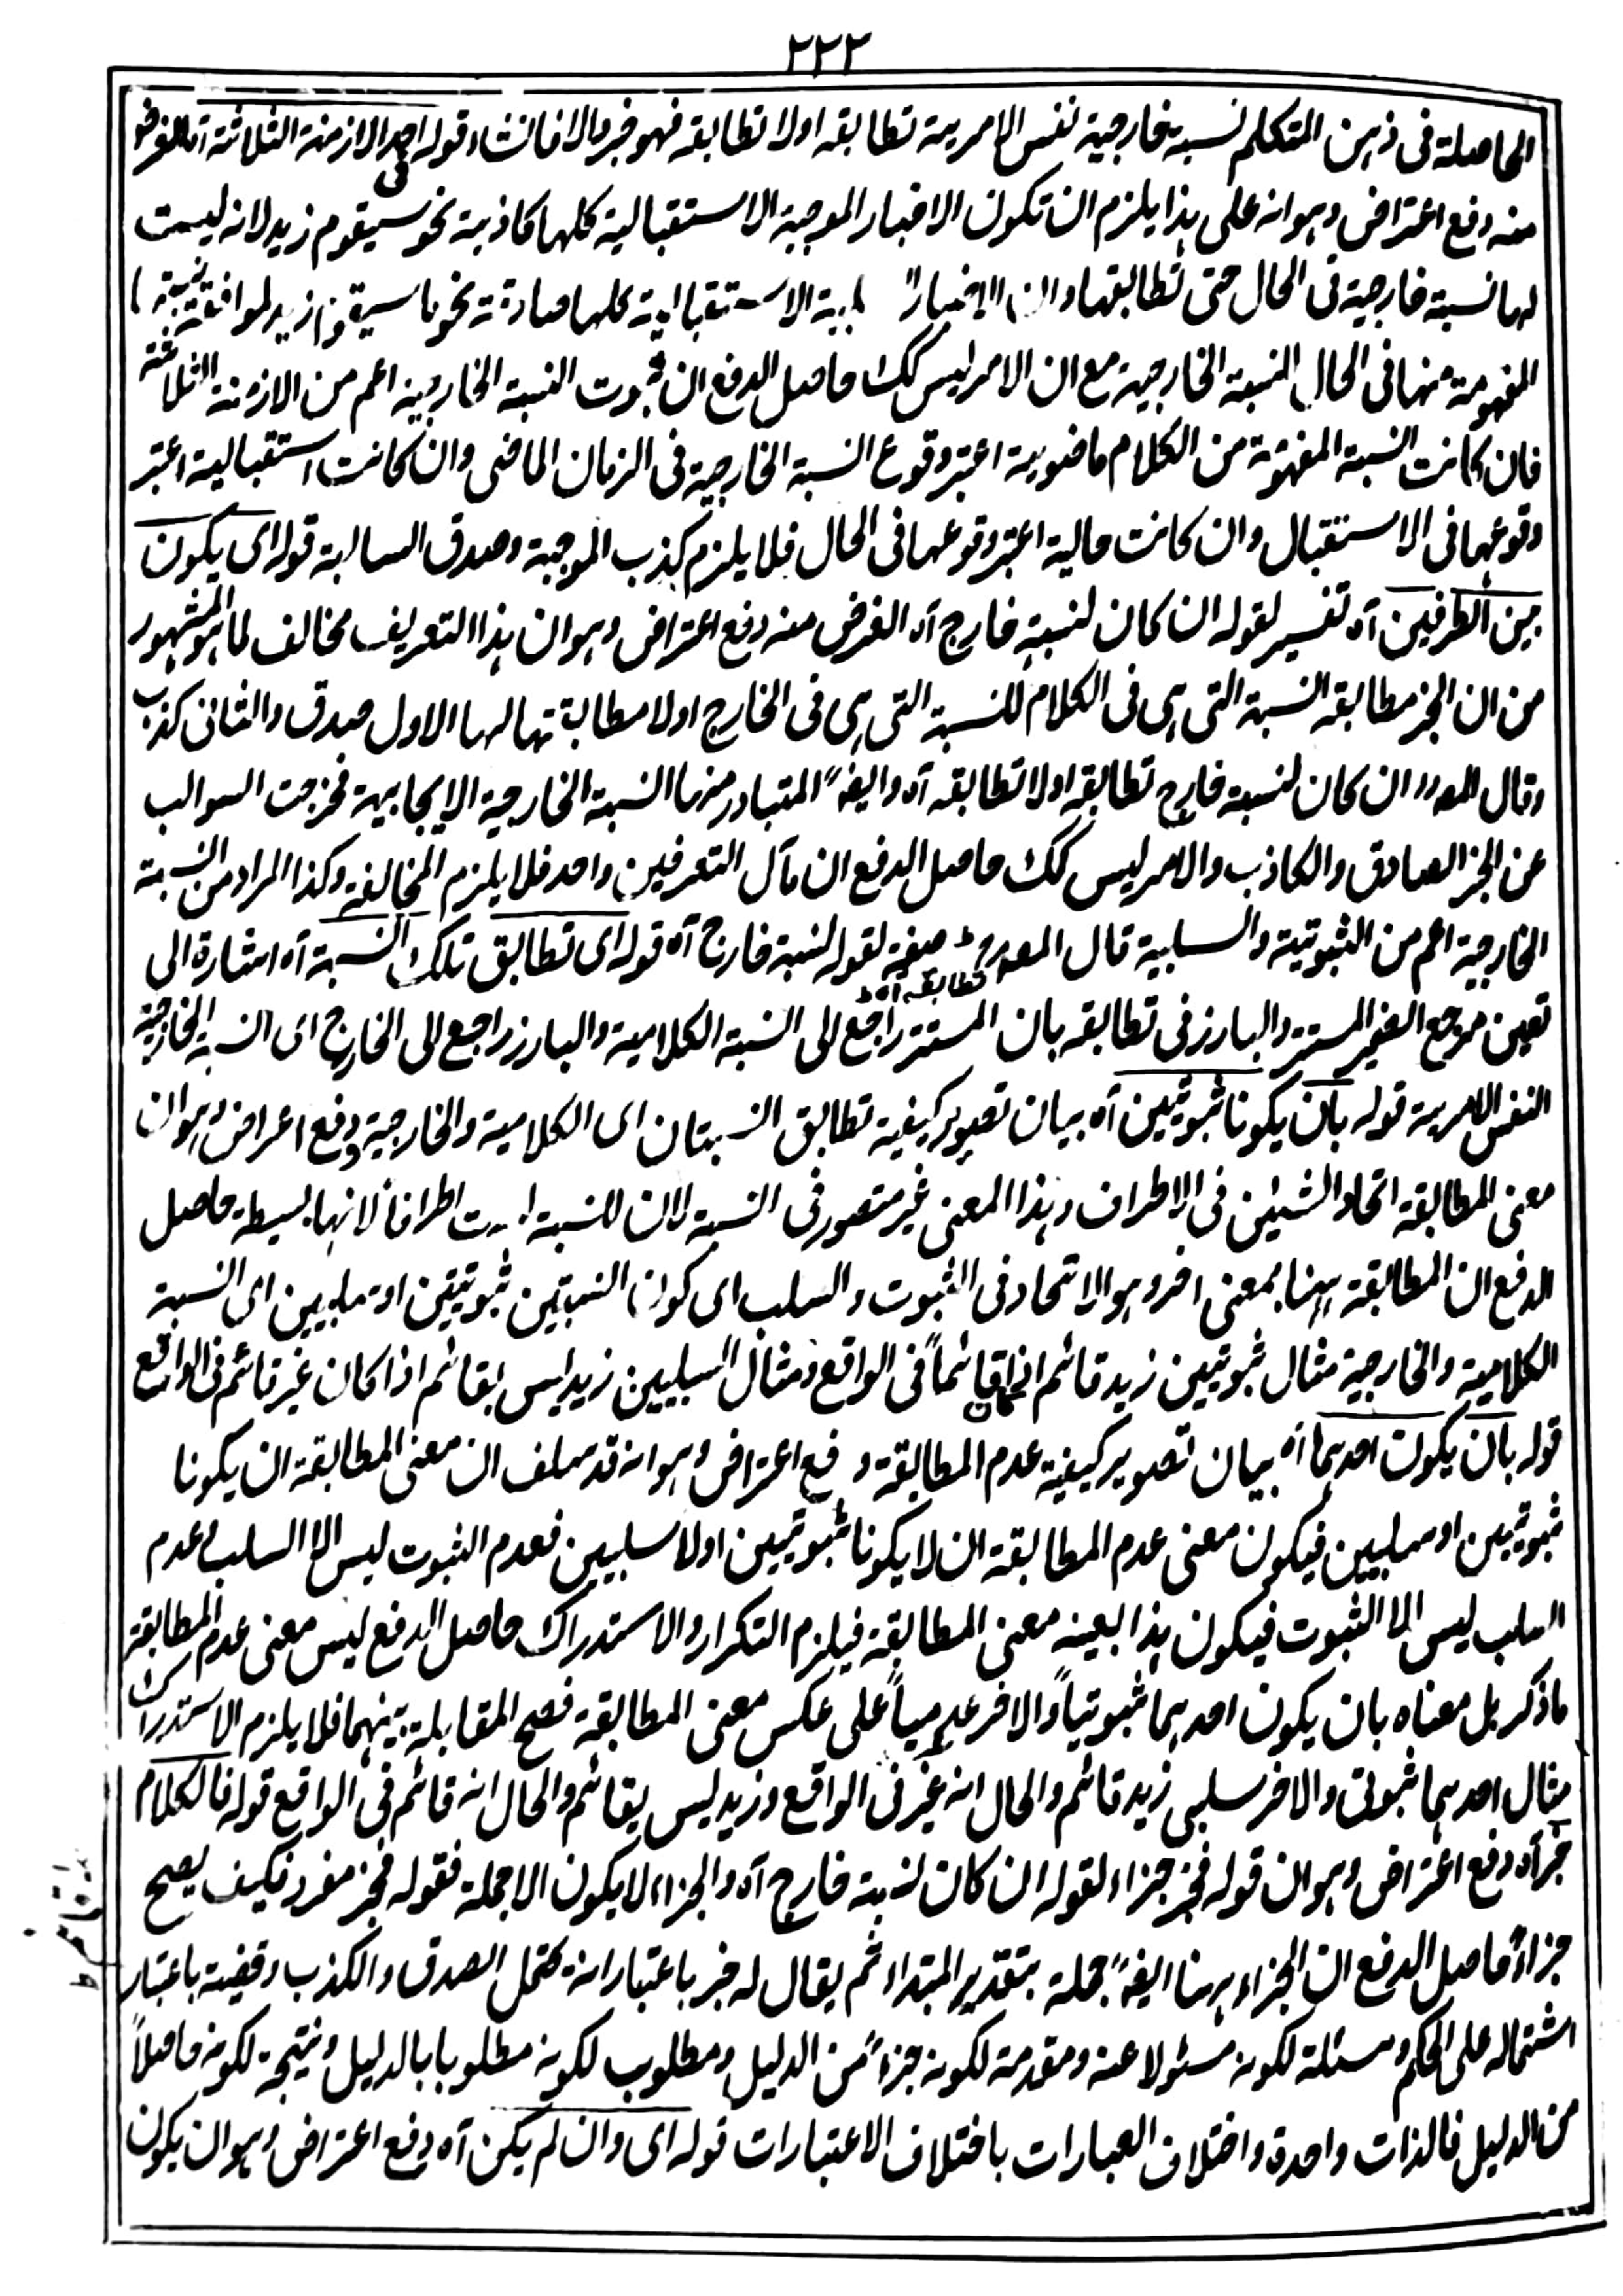 ٢٢٣
الحاصلة فى ذهن المتكلم نسبة خارجية نفس الامرية تطابقه اولا تطابقه فهو خبر والا فانشاء قوله فى احد الازمنة الثلاثة آه الغرض
منه دفع اعتراض وهو انه على هذا يلزم ان تكون الاخبار الموجبة الاستقبالية كلها كاذبة نحو سيقوم زيد لانه ليست
لها نسبة خارجية فى الحال حتى تطابقها وان الاخبار الاستقبالية كلها صادقة نحو ما سيقوم زيد لموافقة نسبة
المفهومة منها فى الحال النسبة الخارجية مع ان الامر ليس كك حاصل الدفع ان ثبوت النسبة الخارجية اعم من الازمنة الثلاثة
فان كانت النسبة المفهومة من الكلام ماضوية اعتبر وقوع النسبة الخارجية فى الزمان الماضى وان كانت استقبالية اعتبر
وقوعها فى الاستقبال وان كانت حالية اعتبر وقوعها فى الحال فلا يلزم كذب الموجبة وصدق السالبة قوله اى يكون
بين الطرفين آه تفسير لقوله ان كان لنسبة خارج آه الغرض منه دفع اعتراض وهو ان هذا التعريف مخالف لما هو المشهور
من ان الخبر مطابقة النسبة التى هى فى الكلام للنسبة التى هى فى الخارج اولا مطابقتها لها الاول صدق والثانى كذب
وقال المصرر ان كان لنسبة خارج تطابقه اولا تطابقه آه وايضا المتبادر منها النسبة الخارجية الايجابية فخرجت السوالب
عن الخبر الصادق والكاذب والامر ليس كك حاصل الدفع ان مآل التعرفين واحد فلا يلزم المخالفة وكذا المراد من النسبة
الخارجية اعم من الثبوتية والسلبية قال المصرر تطابقه آه صفة لقوله لنسبة خارج آه قوله اى تطابق تلك النسبة آه اشارة الى
تعين مرجع الضمير المستتر والبارز فى تطابقه بان المستتر راجع الى النسبة الكلامية والبارز راجع الى الخارج اى النسبة الخارجية
النفس الامرية قوله بان يكونا ثبوتيين آه بيان تصوير كيفية تطابق النسبتان اى الكلامية والخارجية ودفع اعراض وهو ان
معنى المطابقة اتحاد الشيئين فى الاطراف وهذا المعنى غير متصور فى النسبة لان للنسبة ليست اطرافا لانها بسيطة حاصل
الدفع ان المطابقة ههنا بمعنى اخر وهو الاتحاد فى الثبوت والسلب اى كون النسبتين ثبوتيتين او سلبيين اى النسبة
الكلامية والخارجية مثال ثبوتيين زيد قائم اذا كان قائماً فى الواقع ومثال السلبيين زيد ليس بقائم اذا كان غير قائم فى الواقع
قوله بان يكون احدهما آه بيان تصوير كيفية عدم المطابقة ودفع اعتراض وهو انه قد سلف ان معنى المطابقة ان يكونا
ثبوتيين او سلبيين فيكون معنى عدم المطابقة ان لا يكونا ثبوتيين اولا سلبيين فعدم الثبوت ليس الا السلب وعدم
السلب ليس الا الثبوت فيكون هذا بعينه معنى المطابقة فيلزم التكرار والاستدراك حاصل الدفع ليس معنى عدم المطابقة
ما ذكر بل معناه بان يكون احدهما ثبوتياً والاخر عدمياً على عكس معنى المطابقة فصح المقابلة بينهما فلا يلزم الاستدراك
مثال احدهما ثبوتى والاخر سلبى زيد قائم والحال انه غير فى الواقع وزيد ليس بقائم والحال انه قائم فى الواقع قوله فالكلام
خبر آه دفع اعتراض وهو ان قوله فخبر جزاء لقوله ان كان لنسبة خارج آه والجزاء لا يكون الا جملة فقوله فخبر مفرد فكيف يصح
جزاءً حاصل الدفع ان الجزاء ههنا ايضاً جملة بتقدير المبتداء ثم يقال له خبر باعتبار انه محتمل الصدق والكذب وقضية باعتبار
اشتماله على الحكم ومسئلة لكونه مسئولا عنه ومقدمة لكونه جزءً من الدليل ومطلوب لكونه مطلوبا بالدليل ونتيجة لكونه حاصلاً
من الدليل فالذات واحدة واختلاف العبارات باختلاف الاعتبارات قوله اى وان لم يكن آه دفع اعتراض وهو ان يكون